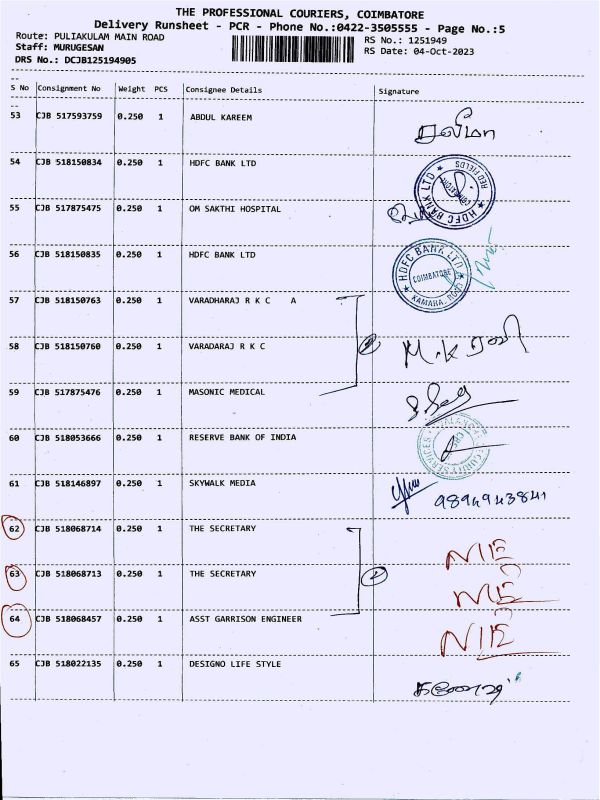 THE PROFESSIONAL COURIERS, COIMBATORE
Delivery Runsheet - PCR - Phone No.:0422-3505555 - Page No.:5
Route: PULIAKULAM MAIN ROAD RS No.: 1251949
Staff: MURUGESAN RS Date: 04-Oct-2023
DRS No.: DCJB125194905
S No Consignment No Weight PCS Consignee Details Signature
53 CJB 517593759 0.250 1 ABDUL KAREEM
54 CJB 518150834 0.250 1 HDFC BANK LTD HDFC BANK LTD RED FIELDS
55 CJB 517875475 0.250 1 OM SAKTHI HOSPITAL
56 CJB 518150835 0.250 1 HDFC BANK LTD HDFC BANK LTD COIMBATORE
57 CJB 518150763 0.250 1 VARADHARAJ R K C A
58 CJB 518150760 0.250 1 VARADARAJ R K C M.K ரவி
59 CJB 517875476 0.250 1 MASONIC MEDICAL
60 CJB 518053666 0.250 1 RESERVE BANK OF INDIA
61 CJB 518146897 0.250 1 SKYWALK MEDIA
62 CJB 518068714 0.250 1 THE SECRETARY
63 CJB 518068713 0.250 1 THE SECRETARY
64 CJB 518068457 0.250 1 ASST GARRISON ENGINEER
65 CJB 518022135 0.250 1 DESIGNO LIFE STYLE